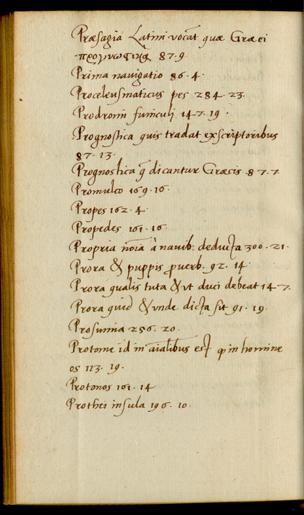 Præsagia Latini vocāt quæ Græci
προγνωσεις 87.9
Prima nauigatio 86.4.
Proceleusmaticus pes 284. 23.
Prodromi funiculi 147.19.
Prognostica quis tradat ex scriptoribus
87.13.
Prognostica q̄ dicantur Græcis 87.7
Promulco 169.16.
Propes 162.4.
Propedes 161.16.
Propria noīa ā nauib. deducta 300.21.
Prora & puppis ꝓuerb. 92. 14
Prora qualis tuta & vt duci debeat 147.
Prora quid & vnde dicta sit 91. 19.
Prosumia 256. 20.
Protome id in aīalibus est qͩ in homine
os 113. 19.
Protonos 161. 14
Prothei insula 196. 10.